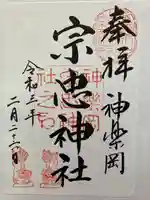 奉拝
神楽岡
宗忠神社
令和三年
二月二十二日